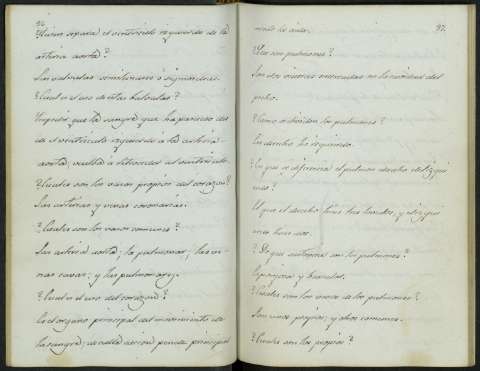 96
?Quien separa el ventriculo izquierdo de la
arteria aorta?
Las valvulas semilunares ó sigmoideas.
?Cual es el uso de estas balbulas?
Impedir que la sangre que ha pasado des
de el ventriculo izquierdo á la arteria
aorta, vuelba á retroceder al ventriculo.
?Cuales son los vasos propios del corazon?
Las arterias y venas coronarias.
?Cuales son los vasos comunes?
La arteria aorta; la pulmonar; las ve-
nas cavas; y las pulmonares.
?Cual es el uso del corazon?
Es el organo principal del movimiento de
la sangre; de cuya accion pende principal
97.
mente la vida.
?Que son pulmones?
Las dos viseras encerradas en la cavidad del
pecho.
?Como se dividen los pulmones?
En derecho é izquierdo.
?En que se diferencia el pulmon derecho del izqui
erdo?
En que el derecho tiene tres lobulos, y el izqui
erdo tiene dos.
?De que sustancia son los pulmones?
Esponjosa y bascular.
?Cuales son los vasos de los pulmones?
Son unos propios; y otros comunes.
?Cuales son los propios?